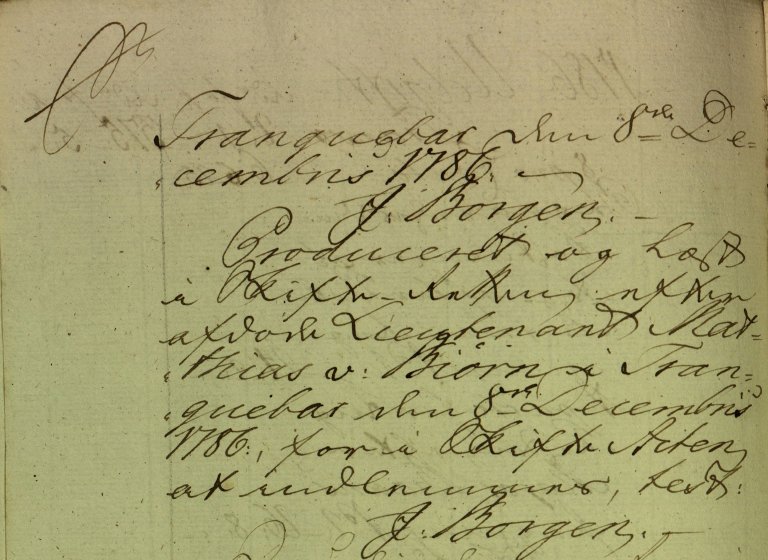 Tranquebar den 8de De=
cembris 1786. —
J. Borgen. —
Produceret og læst
i Skifte-Retten efter
afdøde Lieutenant Mat=
thias v: Biörn i Tran=
quebar den 8de Decembris
1786, for i Skifte Acten
at indlemmes, test:
J. Borgen. —